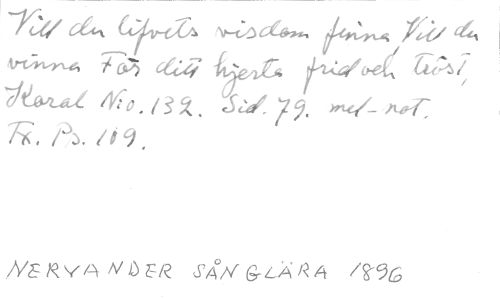 Vill du lifvets visdom finna, Vill du
vinna För ditt hjerta frid och tröst,
Koral N:o. 132. Sid. 79. mel-not.
Tx. Ps. 109.
NERVANDER SÅNGLÄRA 1896